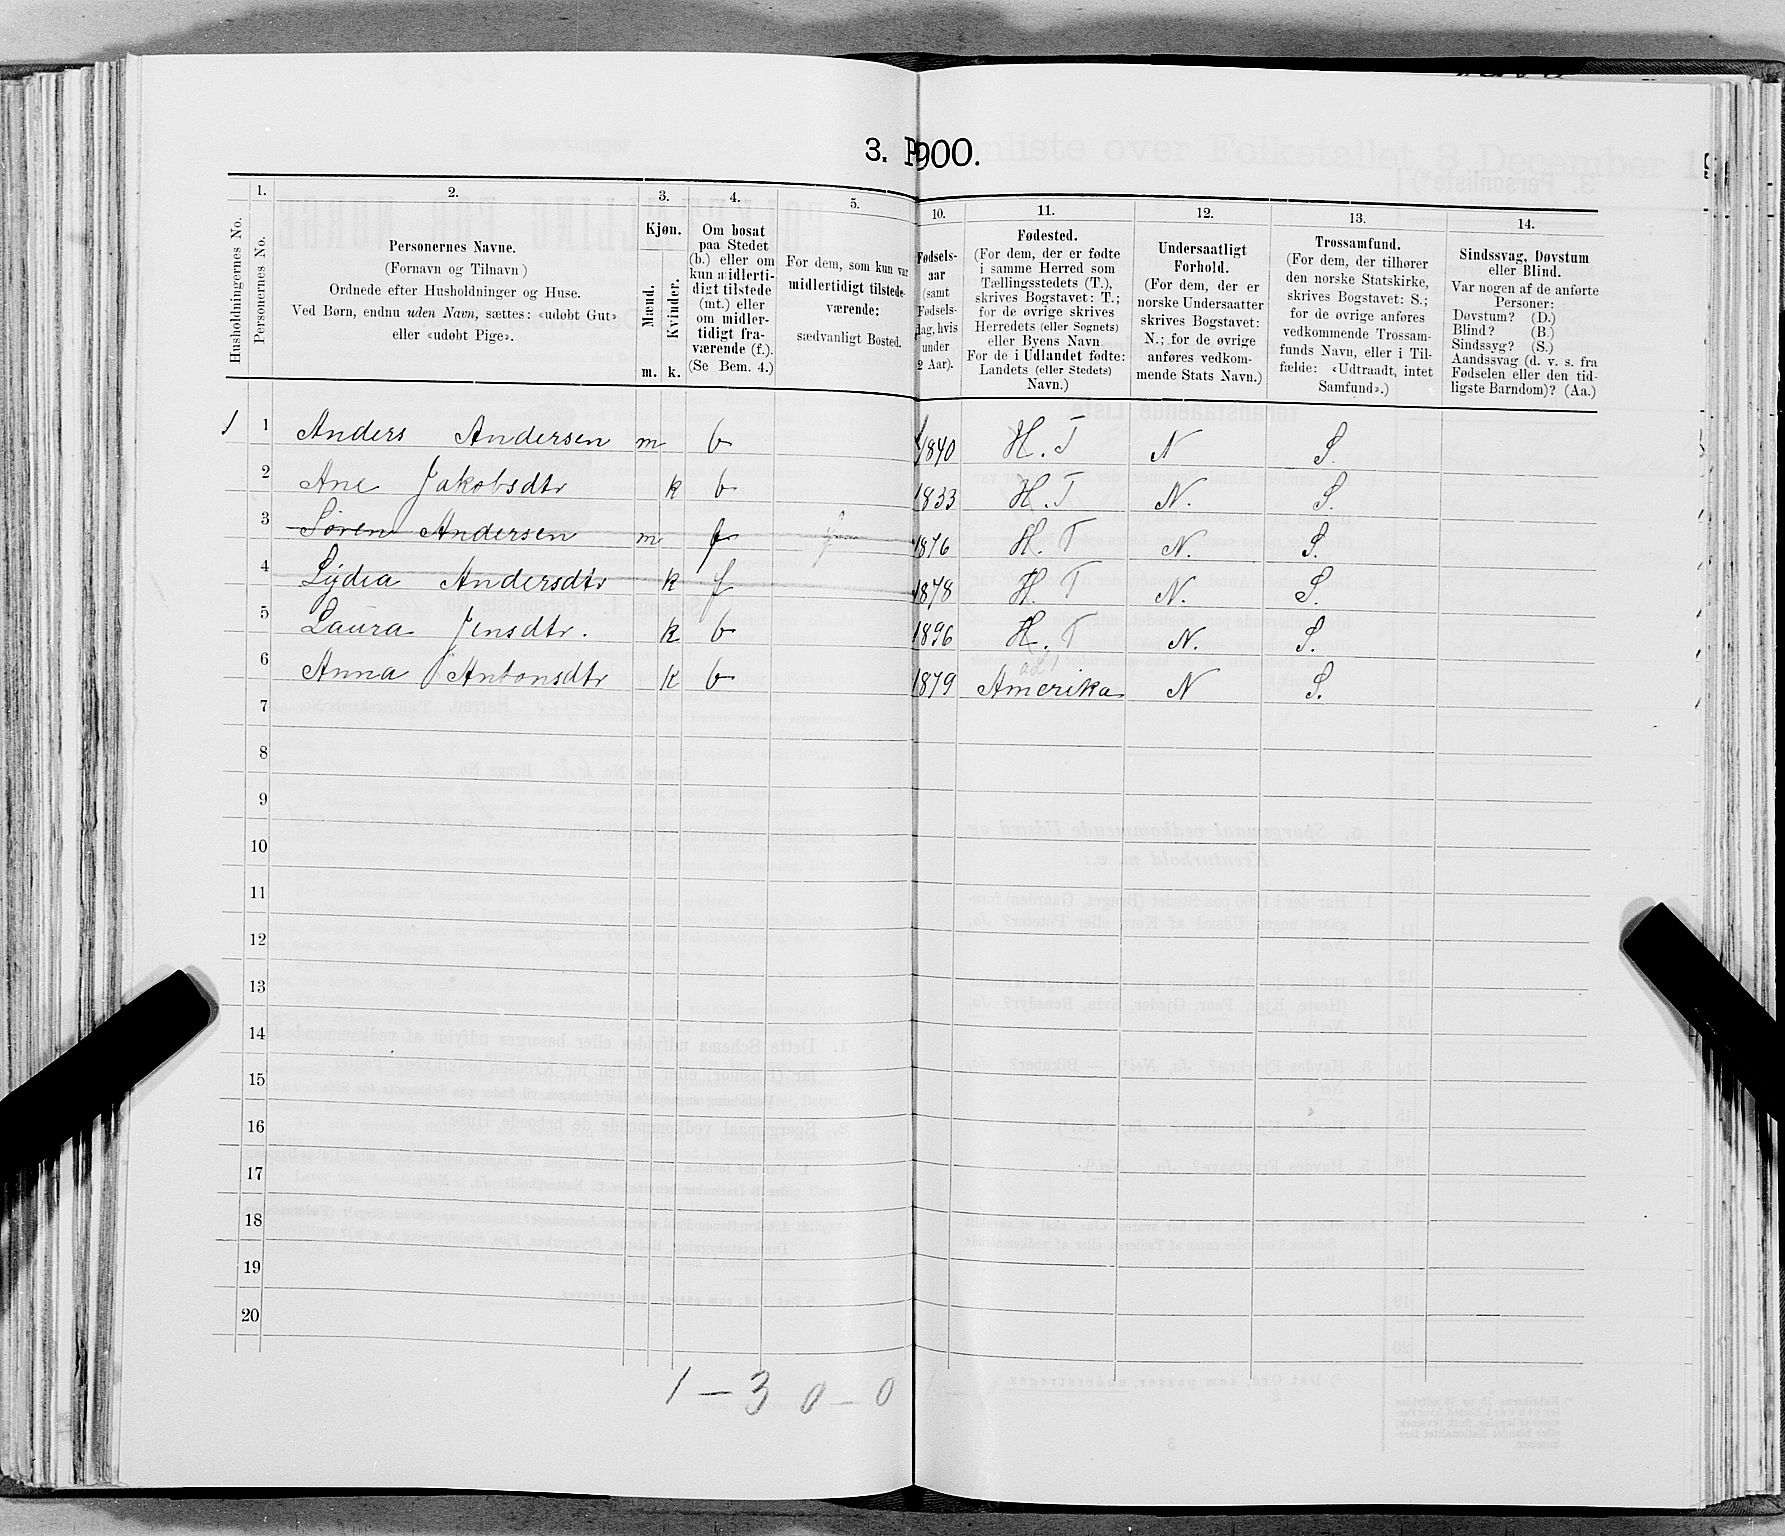 3. P900.
1. 2. 3. 4. 5. 10. 11. 12. 13. 14.
Husholdningernes No.
Personernes No.
Personernes Navne.
(Fornavn og Tilnavn)
Ordnede efter Husholdninger og Huse.
Ved Børn, endnu uden Navn, sættes: «udøbt Gut»
eller «udøbt Pige».
Kjøn.
Mænd.
Kvinder.
m. k.
Om bosat
paa Stedet
(b.) eller om
kun midlerti-
digt tilstede
(mt.) eller
om midler-
tidigt fra-
værende (f.).
(Se Bem. 4.)
For dem, som kun var
midlertidigt tilstede-
værende:
sædvanligt Bosted.
Fødsels-
aar
(samt
Fødsels-
dag, hvis
under
2 Aar).
Fødested.
(For dem, der er fødte
i samme Herred som
Tællingsstedets (T.),
skrives Bogstavet: T.;
for de øvrige skrives
Herredets (eller Sognets)
eller Byens Navn.
For de i Udlandet fødte:
Landets (eller Stedets)
Navn.)
Undersaatligt
Forhold.
(For dem, der er
norske Undersaatter
skrives Bogstavet:
N.; for de øvrige
anføres vedkom-
mende Stats Navn.)
Trossamfund.
(For dem, der tilhører
den norske Statskirke,
skrives Bogstavet: S.;
for de øvrige anføres
vedkommende Trossam-
funds Navn, eller i Til-
fælde: «Udtraadt, intet
Samfund».)
Sindssvag, Døvstum
eller Blind.
Var nogen af de anførte
Personer:
Døvstum? (D.)
Blind? (B.)
Sindssyg? (S.)
Aandssvag (d. v. s. fra
Fødselen eller den tid-
ligste Barndom)? (Aa.)
1 1 Anders Andersen m b 1840 H. T N S.
2 Ane Jakobsdtr k b 1833 H. T N. S.
3 Søren Andersen m f 1876 H. T N. S.
4 Lydia Andersdtr k f 1878 H. T N. S.
5 Laura Jensdtr. k b 1896 H. T N. S.
6 Anna Antonsdtr k b 1879 Amerika N S.
7
8
9
10
11
12
13
14
15
16
17
18
19
20
1 – 3 0 – 0